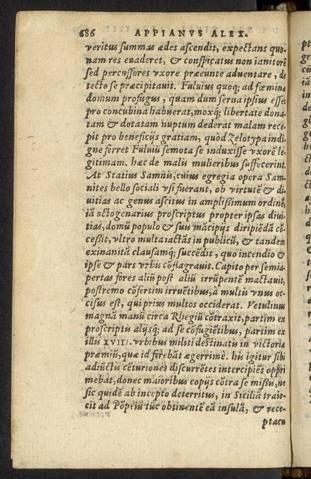 686 APPIANVS ALEX.
veritus summas ædes ascendit, expectans quo-
nam res euaderet, & conspicatus non ianitorē
sed percussores vxore præeunte aduentare, de
tecto se præcipitauit. Fuluius quoq; ad fœminæ
domum profugus, quam dum serua ipsius esset
pro concubina habuerat, moxq; libertate dona-
tam & dotatam nuptum dederat malam rece-
pit pro beneficijs gratiam, quòd Zelotypa indi-
gne ferret Fuluiū semota se induxisse vxorē le-
gitimam. hæc de malis mulieribus suffecerint.
At Statius Samniū, cuius egregia opera Sam-
nites bello sociali vsi fuerant, ob virtutē & di-
uitias ac genus ascitus in amplissimum ordinē
iā octogenarius proscriptus propter ipsas diui-
tias, domū populo & suis mācipijs diripiēdā cō-
cessit, vltro multa iactās in publicū, & tandem
exinanitā clausamq; succēdit, quo incendio &
ipse & pars vrbis cōflagrauit. Capito per semia-
pertas fores aliū post aliū irrūpentē mactauit,
postremò cōfertim irruētibus, à multis vnus oc-
cisus est, qui prius multos occiderat. Vetulinus
magnā manū circa Rhegiū cōtraxit, partim ex
proscriptis alijsq; ad se cōfugiētibus, partim ex
illis XVIII. vrbibus militi destinatis in victoriæ
præmiū, quæ id ferēbāt ægerrimè. hū igitur sibi
adiūctis cēturiones discurrētes intercipiēs oppri
mebat, donec maioribus copijs cōtra se missis, ne
sic quidē ab incepto deterritus, in Siciliā traie-
cit ad Pōpeiū tūc obtinentē eā insulā, & rece-
ptacu